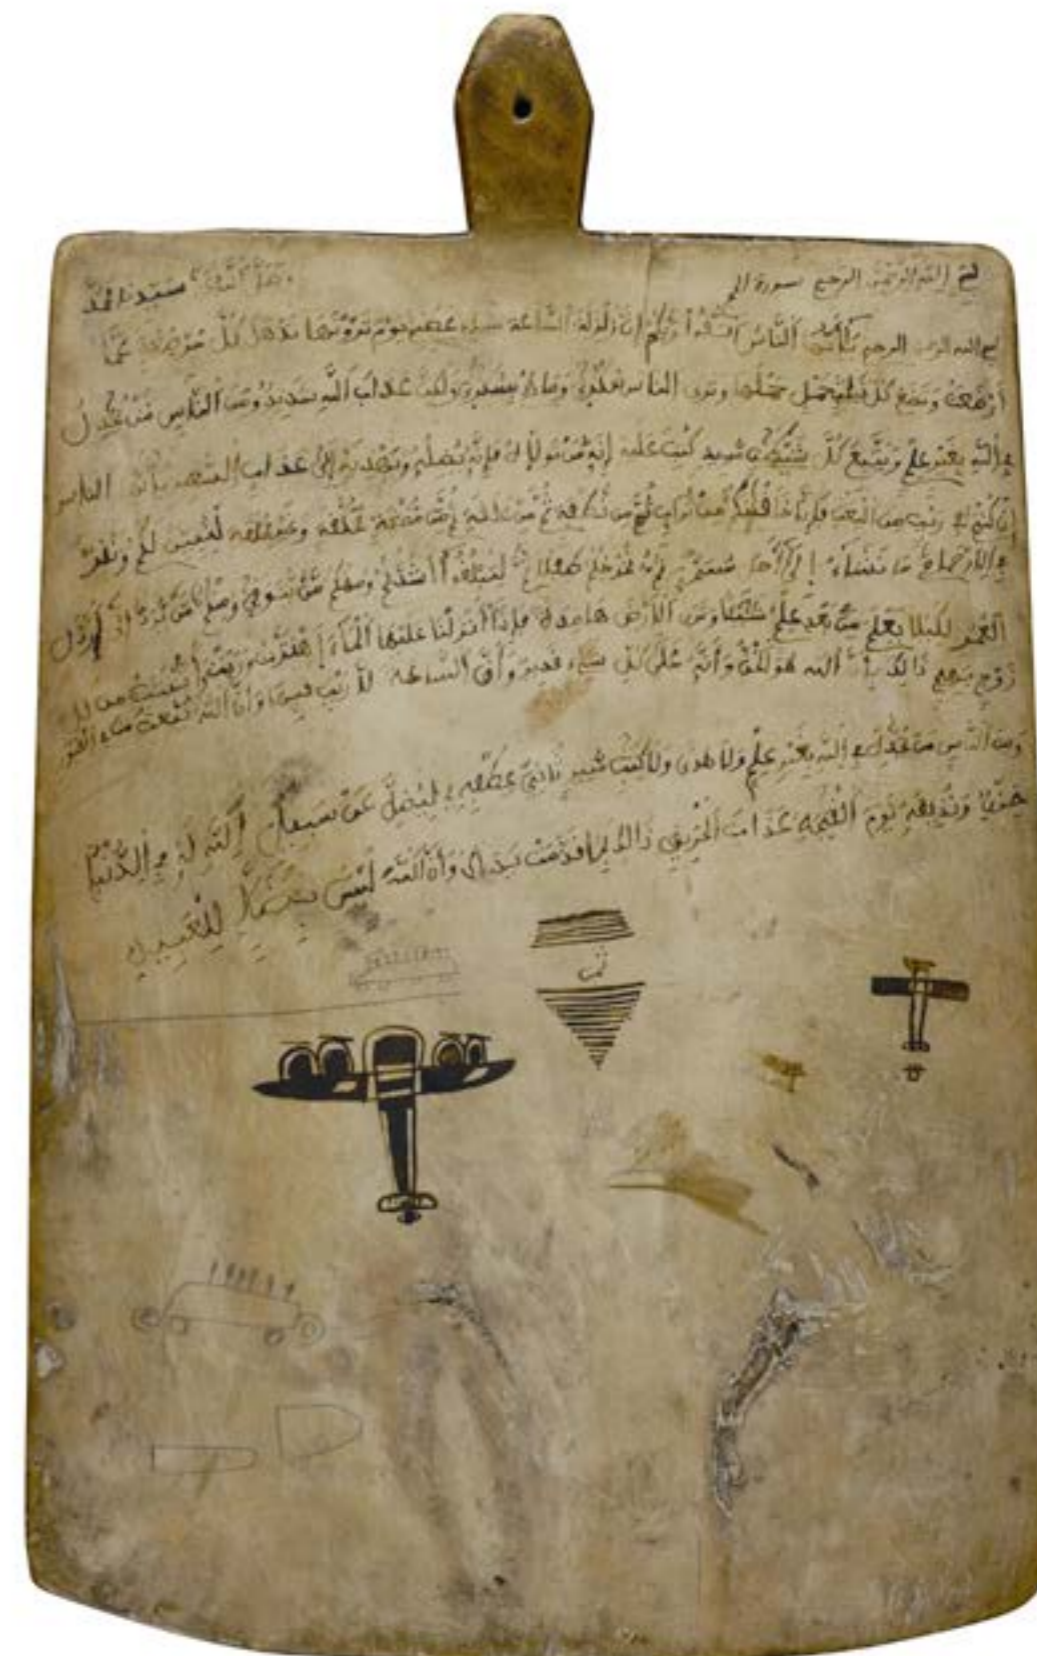 بسم الله الرحمن الرحيم سورة الحج سيدنا محمد
بسم الله الرحمن الرحيم يأيها الناس اتقوا ربكم إن زلزلة الساعة شيء عظيم يوم ترونها تذهل كل مرضعة عما
أرضعت وتضع كل ذات حمل حملها وترى الناس سكرى وما هم بسكرى ولكن عذاب الله شديد ومن الناس من يجدل
في الله بغير علم ويتبع كل شيطن مريد كتب عليه أنه من تولاه فإنه يضله ويهديه إلى عذاب السعير يأيها الناس
إن كنتم في ريب من البعث فإنا خلقنكم من تراب ثم من نطفة ثم من علقة ثم من مضغة مخلقة وغير مخلقة لنبين لكم ونقر
في الأرحام ما نشاء إلى أجل مسمى ثم نخرجكم طفلا ثم لتبلغوا أشدكم ومنكم من يتوفى ومنكم من يرد إلى أرذل
العمر لكيلا يعلم من بعد علم شيئا وترى الأرض هامدة فإذا أنزلنا عليها الماء اهتزت وربت وأنبتت من كل
زوج بهيج ذالك بأن الله هو الحق وأنه على كل شيء قدير وأن الساعة لا ريب فيها وأن الله يبعث من في القبور
ومن الناس من يجدل في الله بغير علم ولا هدى ولا كتب منير ثاني عطفه ليضل عن سبيل الله له في الدنيا
خزي ونذيقه يوم القيمة عذاب الحريق ذالك بما قدمت يداك وأن الله ليس بظلم للعبيد
ثمن